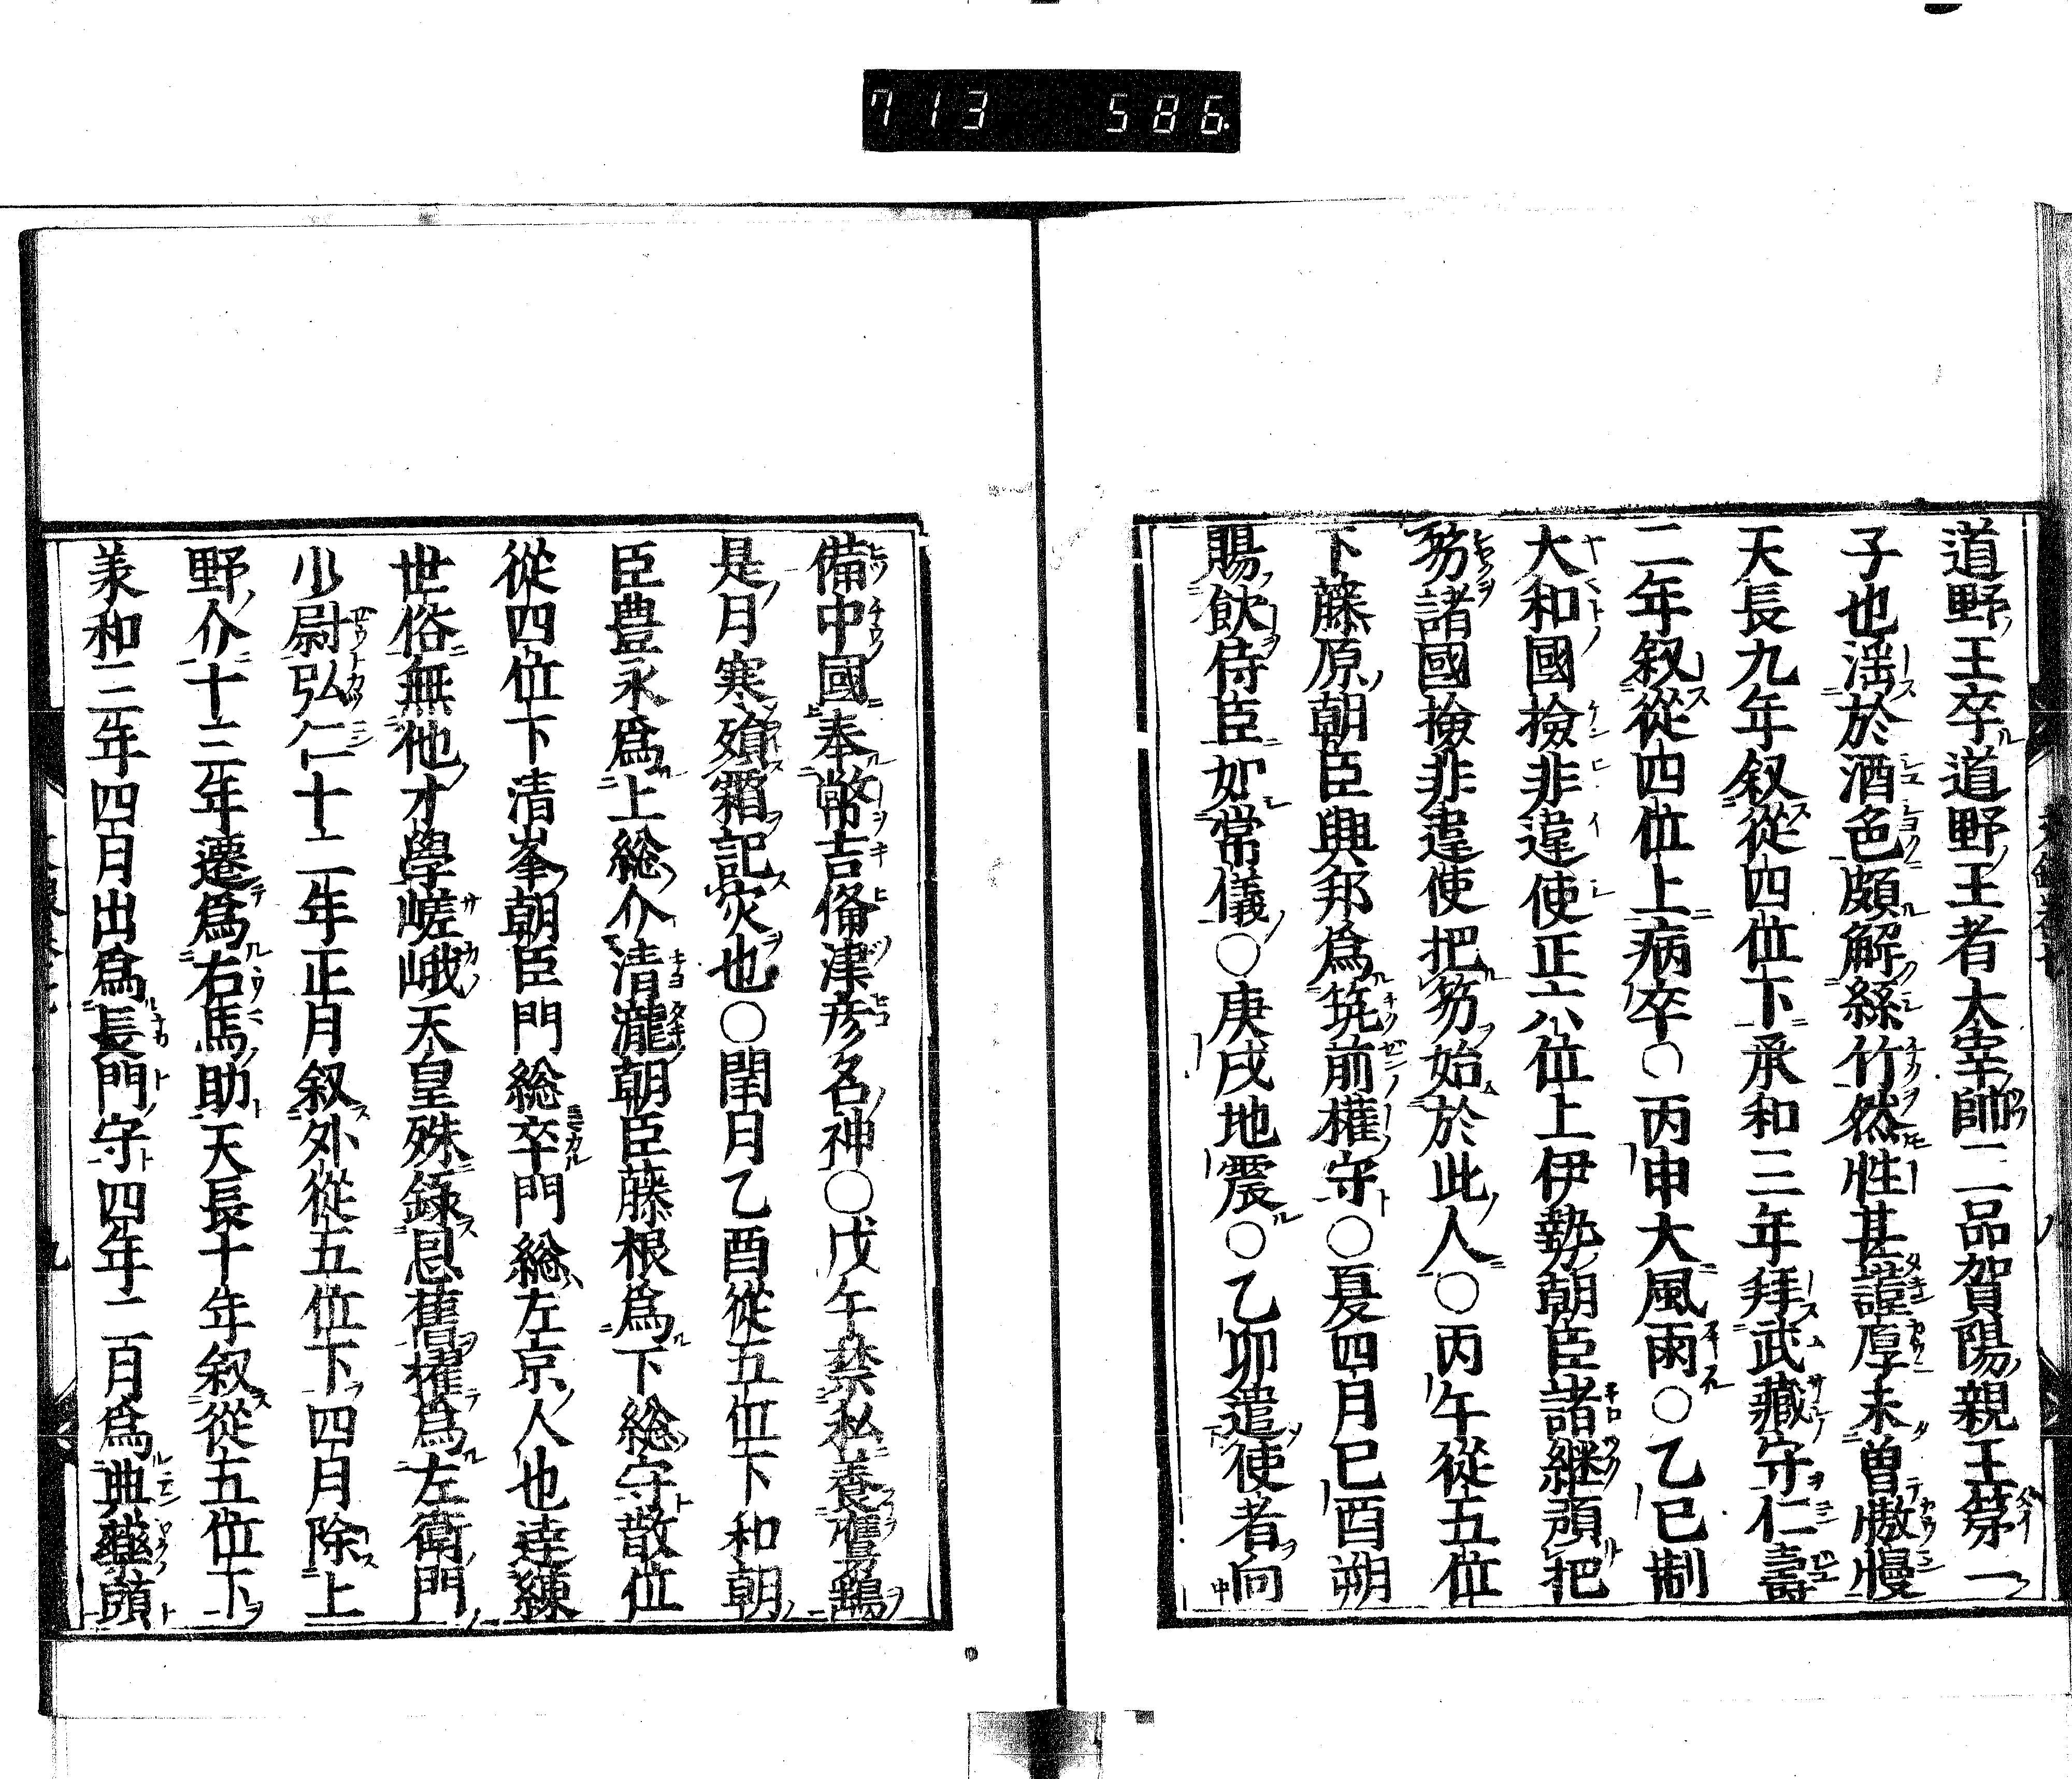 713 586
道野王卒道野王者大宰帥二品賀陽親王第一
子也淫於酒色頗解絲竹然性甚謹厚未曽慠慢
天長九年叙從四位下承和三年拜武藏守仁壽
二年叙從四位上病卒○丙申大風雨○乙巳制
大和國撿非違使正六位上伊勢朝臣諸継頭把
笏諸國撿非違使把笏始於此人○丙午從五位
下藤原朝臣興邦爲筑前權守○夏四月己酉朔
賜飲侍臣如常儀○庚戌地震○乙卯遣使者向
備中國奉幣吉備津彦名神○戊午禁私養鷹鷂
是月寒殞霜記灾也○閏月乙酉從五位下和朝
臣豊永爲上総介清瀧朝臣藤根爲下総守散位
從四位下清峯朝臣門総卒門総左京人也達練
世俗無他才學嵯峨天皇殊錄恩舊擢爲左衛門
少尉弘仁十二年正月叙外從五位下四月除上
野介十三年遷爲右馬助天長十年叙從五位下
羕和二年四月出爲長門守四年二月爲典藥頭
九